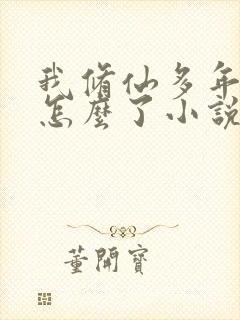 我脩仙多年
怎麼了小說
董開寶